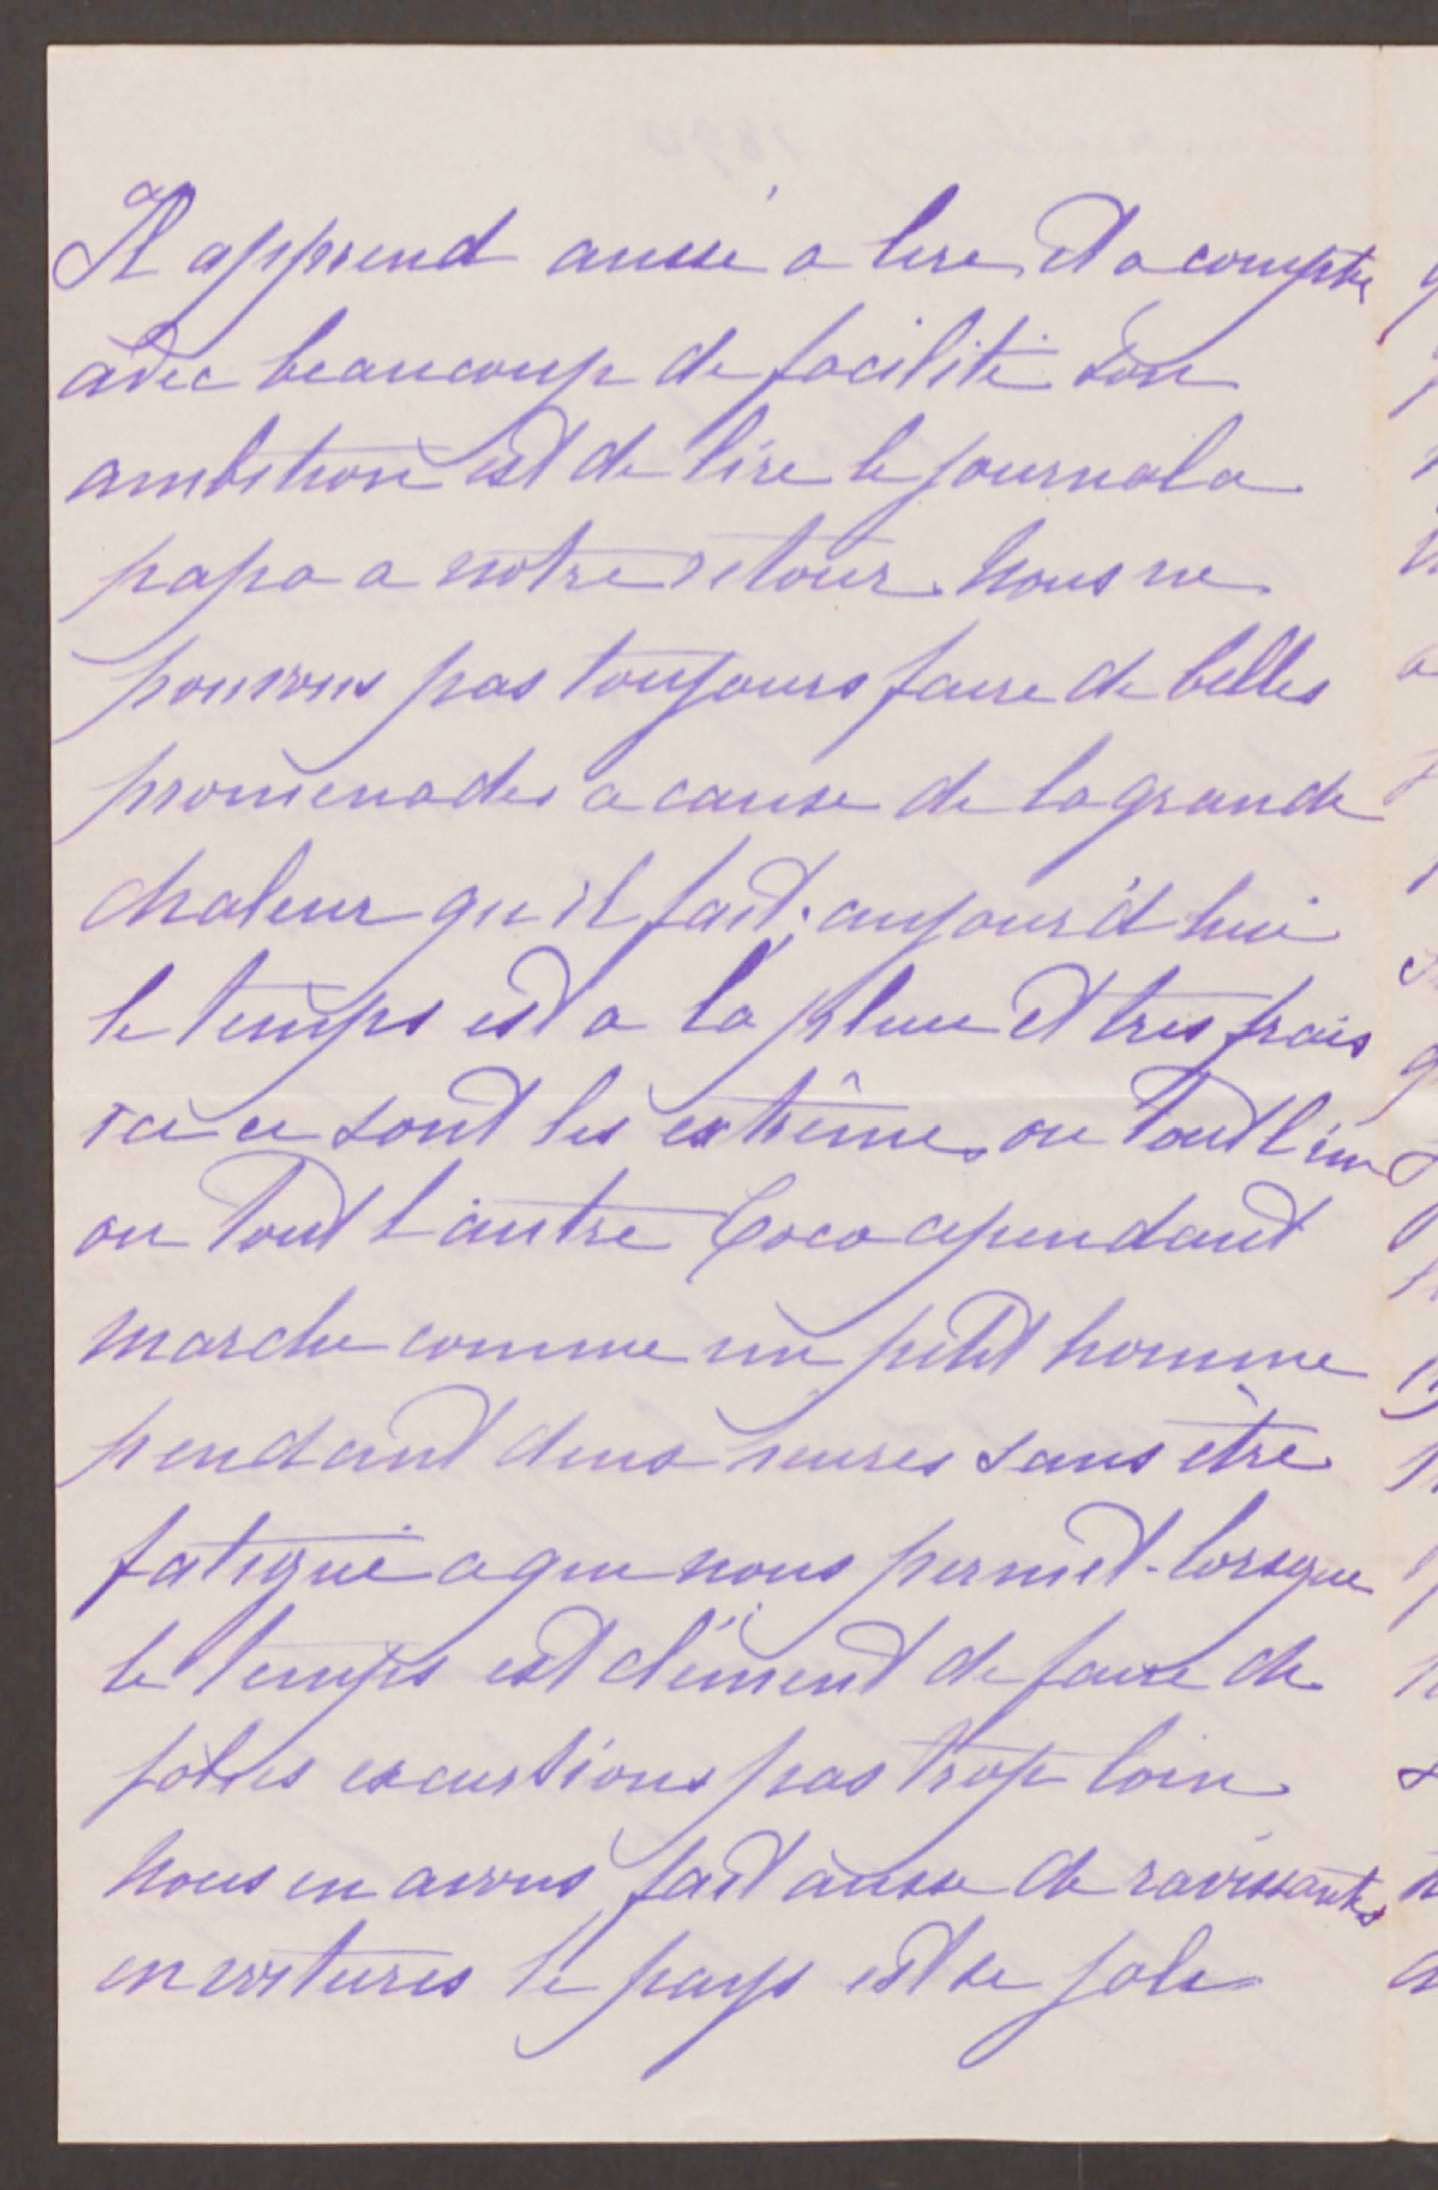 Il apprend aussi a lire et a compter
avec beaucoup de facilité son
ambition est de lire le journal a
papa a notre retour. Nous ne
pouvons pas toujours faire de belles
promenades a cause de la grande
chaleur qu'il fait; aujourd'hui
le temps est a la pluie et tres frais
ici ce sont les extrêmes ou tout l'un
ou tout l'autre Coco cependant
marche comme un petit homme
pendant deux heures sans être
fatigué ce que nous permet lorsque
le temps est clément de faire de
jolies excurtions pas trop loin
nous en avons fait aussi de ravissantes
en voitures le pays est se joli